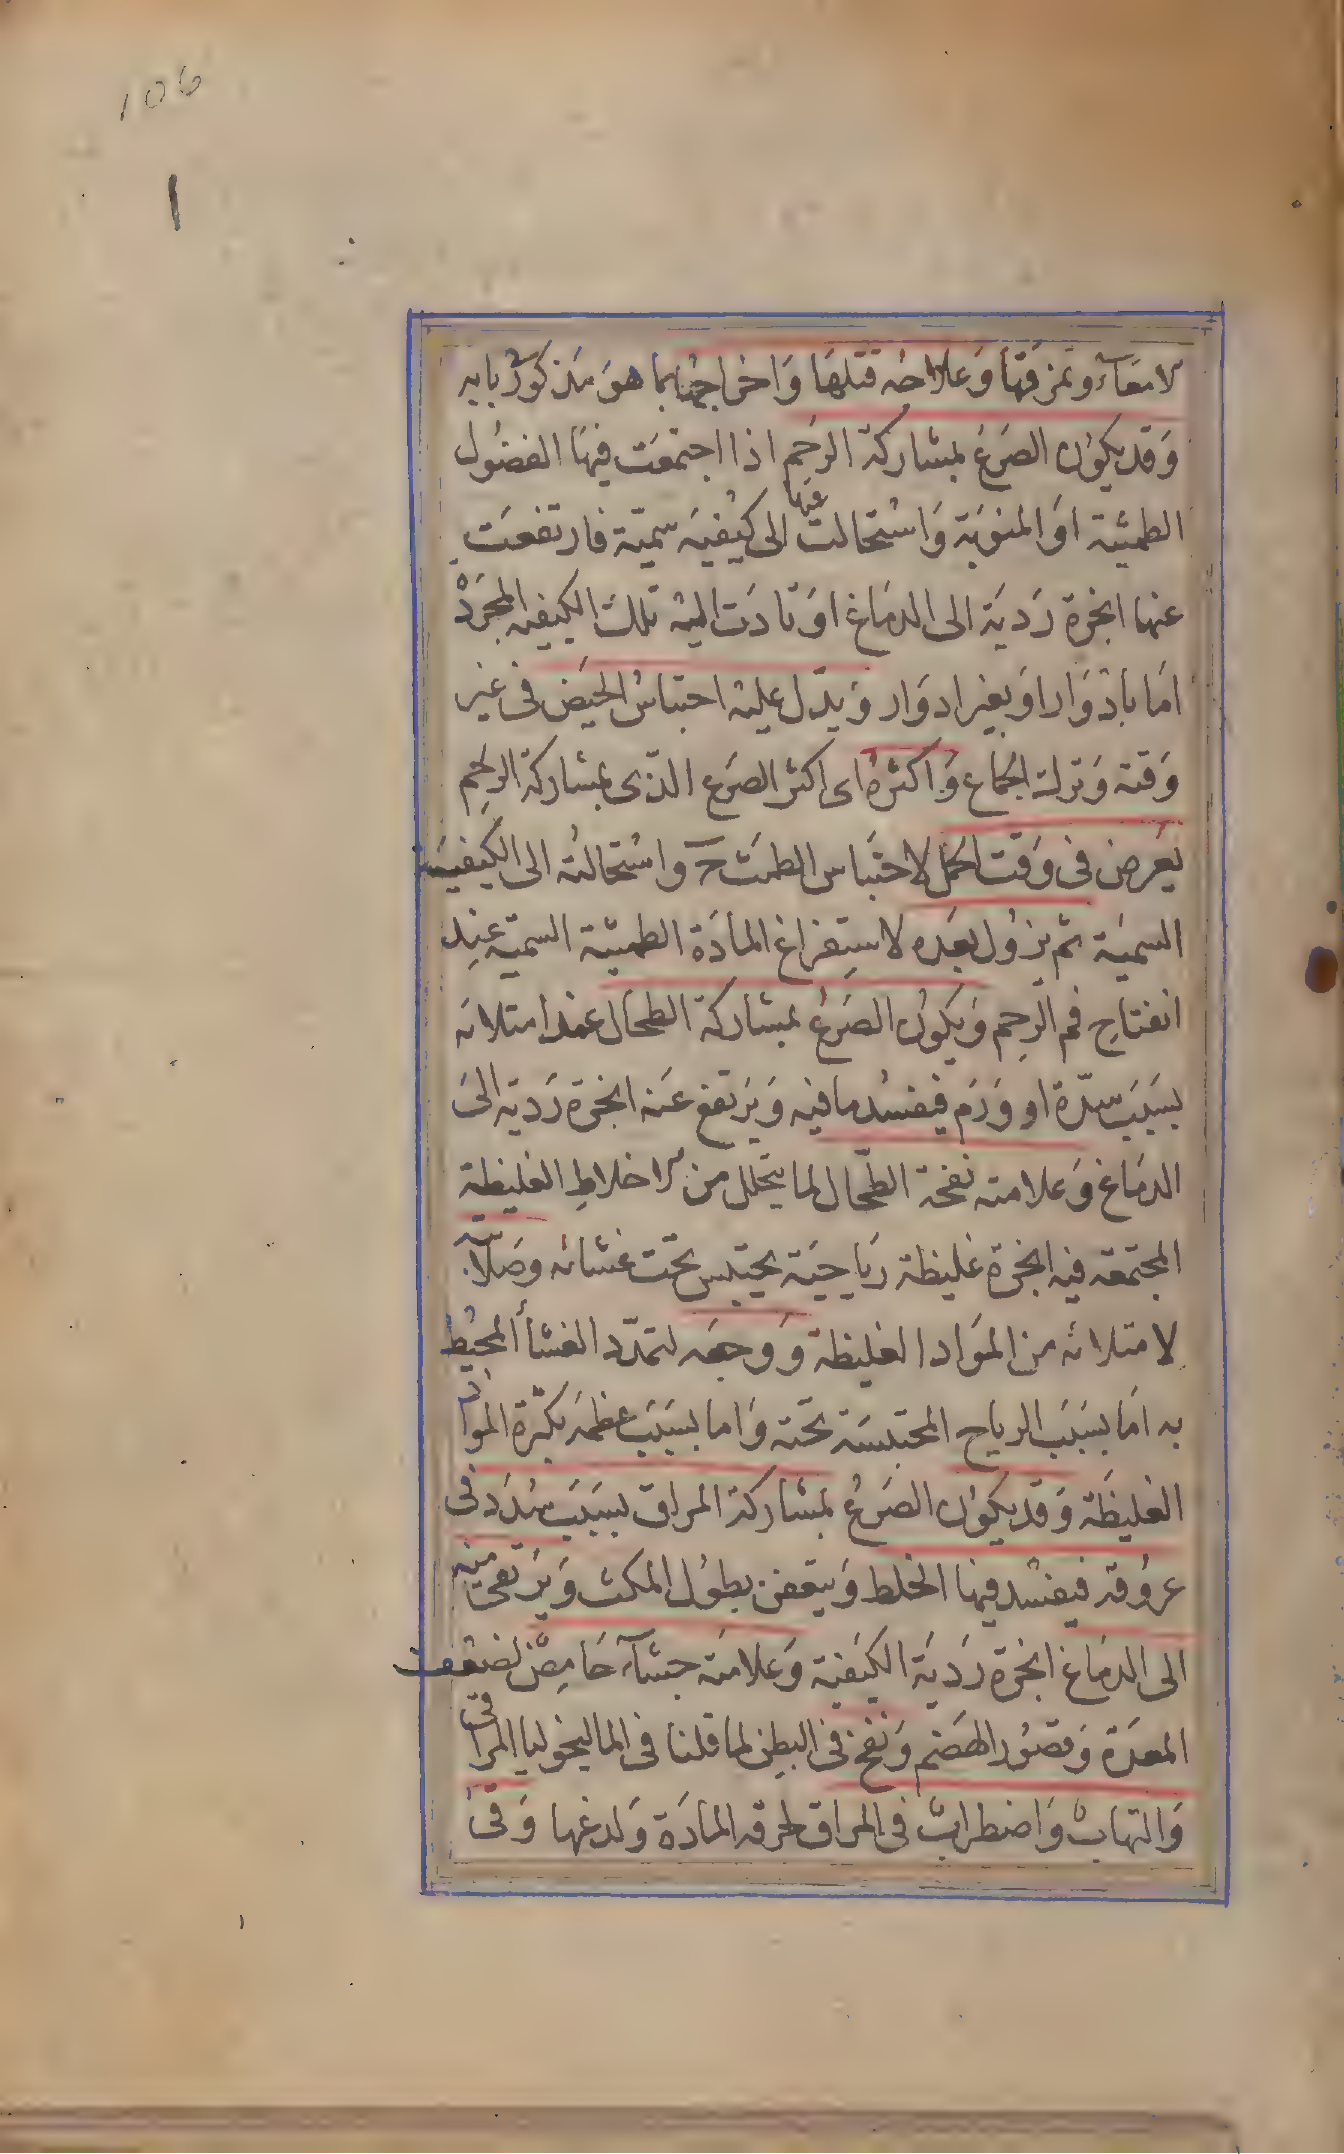 106
لامعآء وتمزقها وعلاجه قتلها واخراجها بما هو مذكور بابه
وقد يكون الصرع بمشاركة الرحم اذا اجتمعت فيها الفضول
الطمثية او المنوية واستحالت فيها الى كيفية سمّية فارتفعت
عنها ابخرة ردية الى الدماغ او تادت اليه تلك الكيفيه المجرد
اما بادوار او بغير ادوار ويدّل عليه احتباس الحيض فى غير
وقته وترك الجماع واكثره اى اكثر الصرع الذّى بمشاركة الرحم
يعرض فى وقت الحمل لاحتباس الطمث ح واستحالته الى الكيفية
السمية ثم يزول بعده لاستفراغ المادة الطمثية السمّية عند
انفتاح فم الرحم ويكون الصرع بمشاركة الطحال عند امتلائه
بسبب سدّة او ورم فيفسد ما فيه ويرتفع عنه ابخرة ردية الى
الدماغ وعلامته نفخة الطّحال لما يتحلل من الاخلاط الغليظة
المجتمعه فيه ابخرة غليظة رياحية يحتبس تحت غشائه وصلابته
لامتلائه من المواد الغليظة ووجعه لتمدّد الغشأ المحيط
به اما بسبب الرياح المحتبسة تحته واما بسبب عظمه بكثرة المواد
الغليظة وقد يكون الصرع بمشاركة المراق بسبب سدد فى
عروقه فيفسد فيها الخلط ويتعفن بطول المكث ويرتقى منه
الى الدماغ ابخرة ردية الكيفية وعلامته جشآء حامض لضعف
المعدة وقصور الهضم ونفخ فى البطن لما قلنا فى الماليخوليا المراقى
والتهاب واضطراب فى المراق لحرقه المادة ولدغها وقى